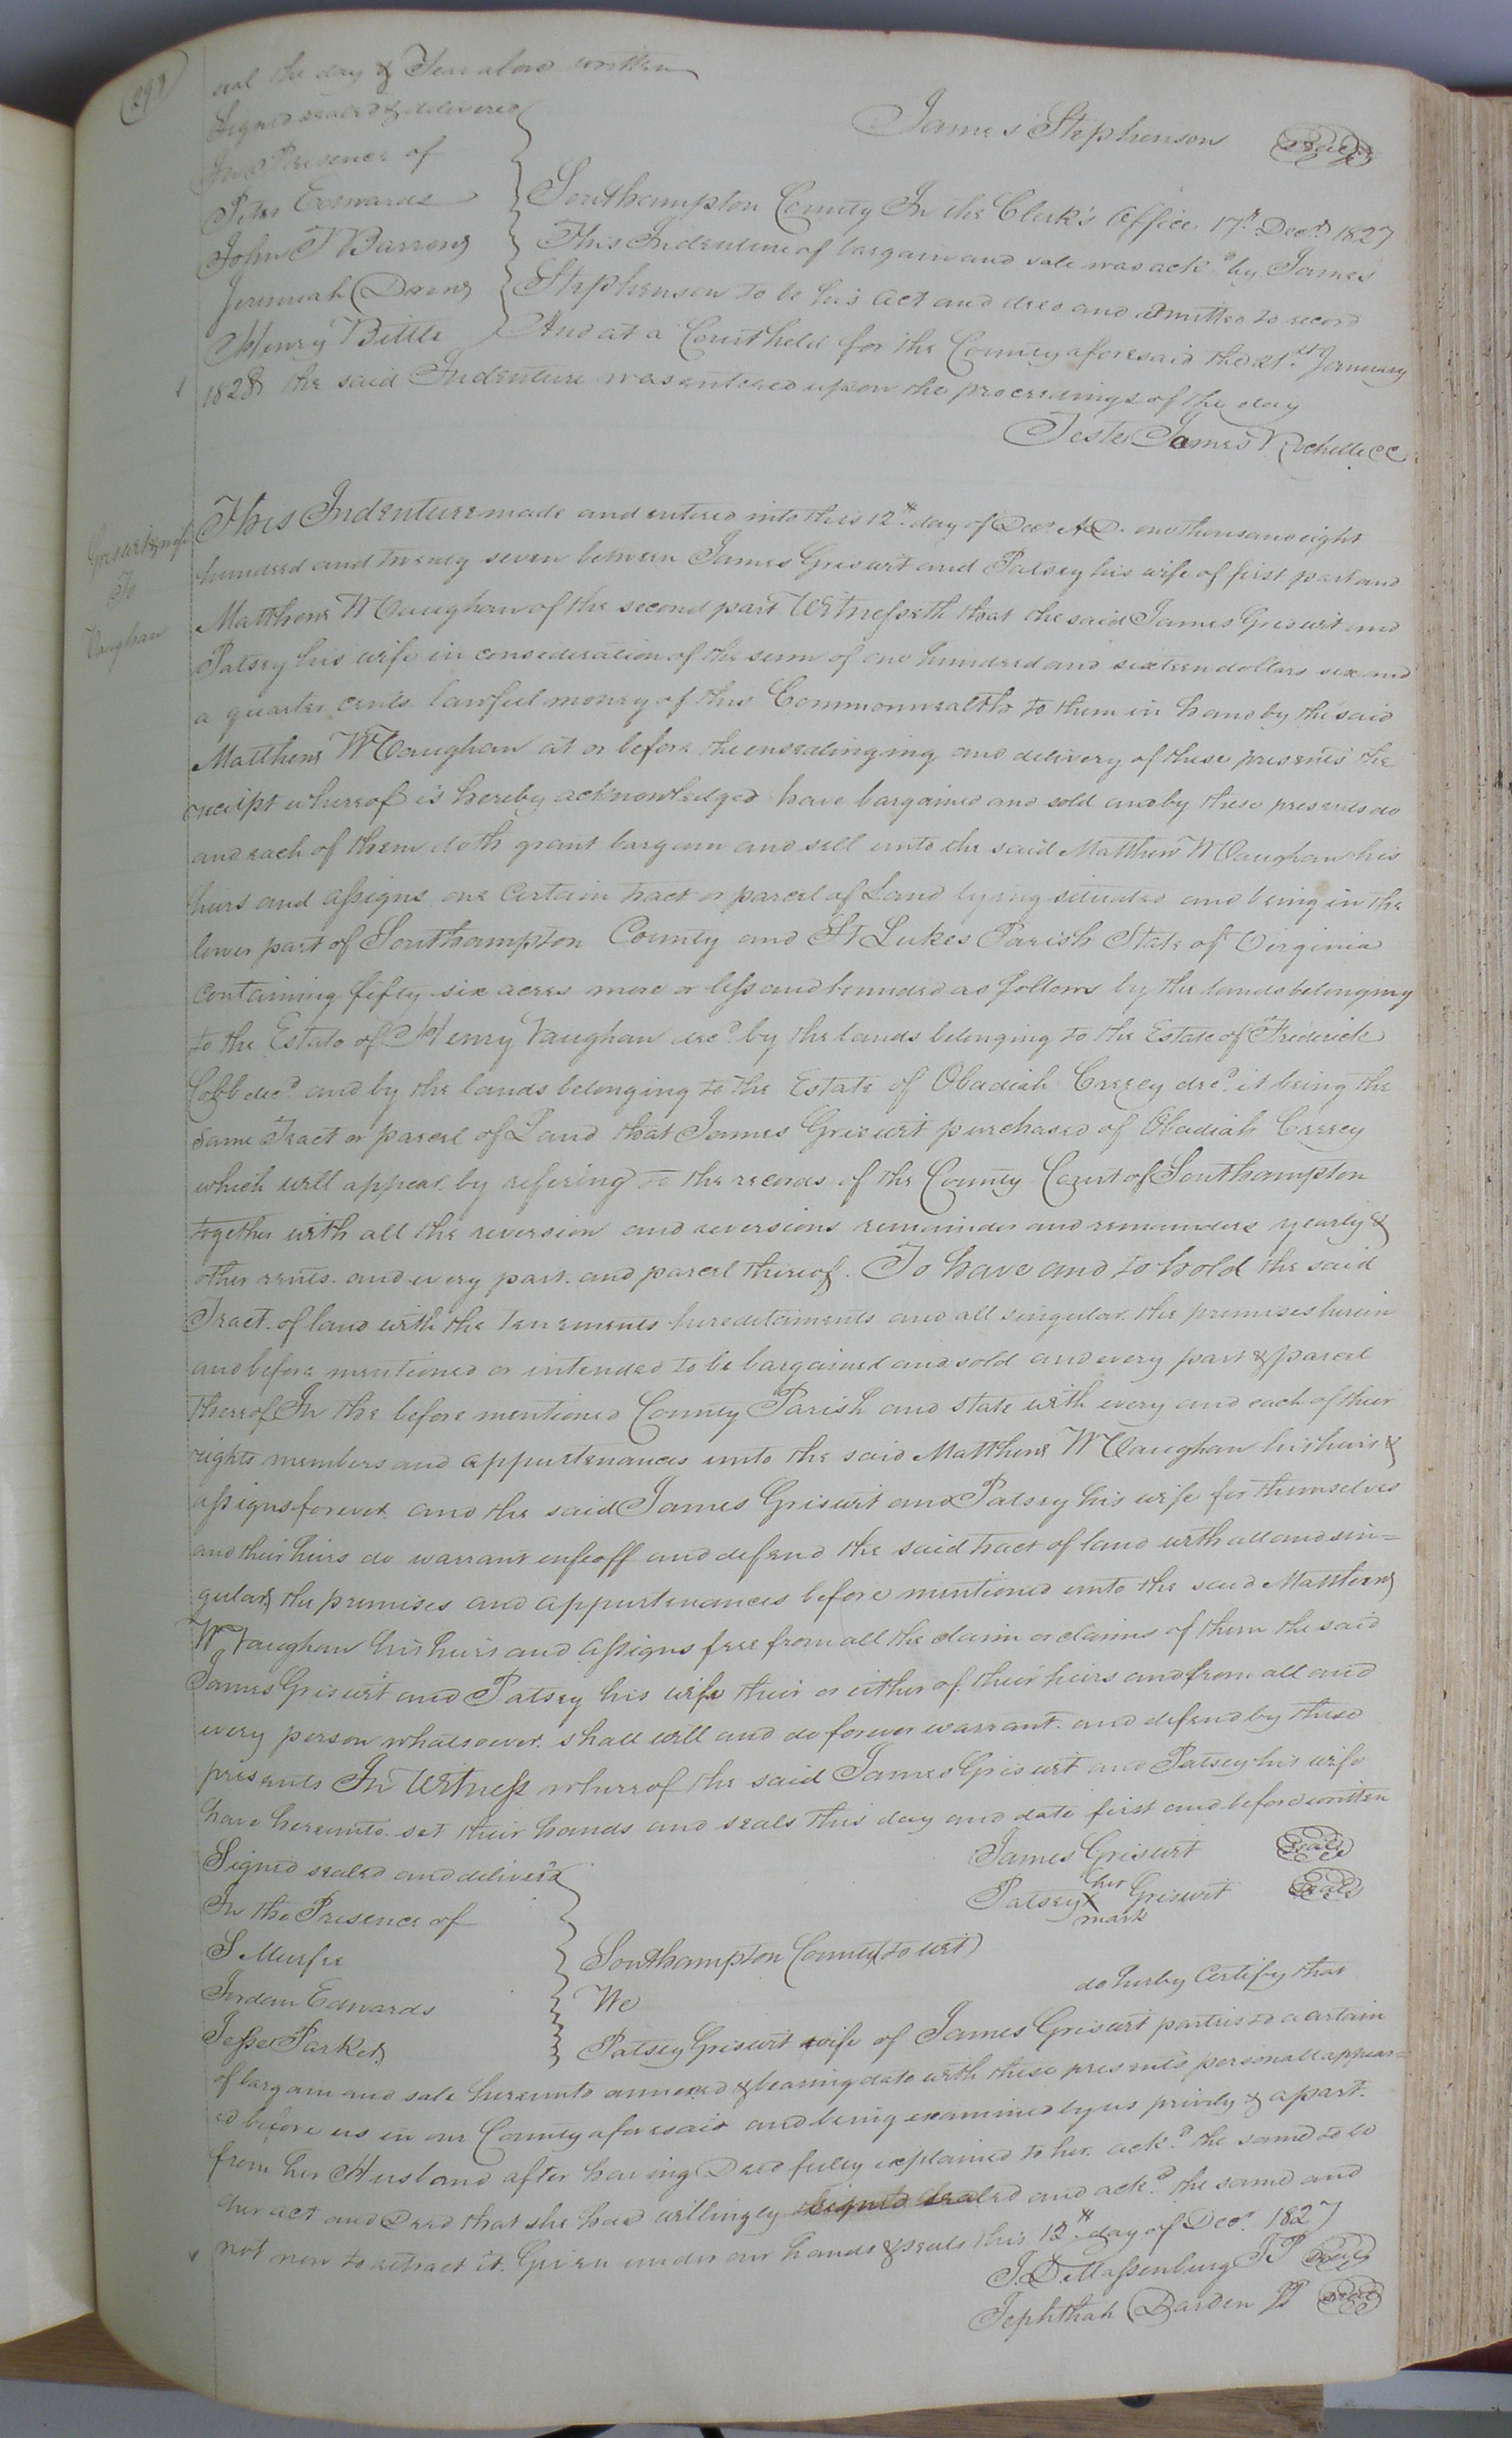 seal the day & Year above written
Signed sealed & delivered
James Stephenson Seal
In Presence of
Peter Edwards
John T Barrow
Jeremiah Drew
Henry Bittle
Southampton County In the Clerk's Office 17th Decr 1827
This Indenture of bargain and sale was ackd by James
Stephenson to be his act and deed and admitted to record
And at a Court held for the County aforesaid the 21st January
1828 the said Indenture was entered upon the proceedings of the day
Teste James Rochelle CC
Griswit & wife
To
Vaughan
This Indenture made and entered into this 12th day of Decr AD. one thousand eight
hundred and twenty seven between James Griswit and Patsey his wife of first part and
Matthew W Vaughan of the second part Witnesseth that the said James Griswit and
Patsey his wife in consideration of the sum of one hundred and sixteen dollars six and
a quarter cents lawful money of this Commonwealth to them in hand by the said
Matthew W Vaughan at or before the ensealinging and delivery of these presents the
receipt whereof is hereby acknowledged have bargained and sold and by these presents do
and each of them doth grant bargain and sell unto the said Matthew W Vaughan his
heirs and assigns one certain tract or parcel of Land lying situated and being in the
lower part of Southampton County and St Lukes Parish State of Virginia
containing fifty six acres more or less and bounded as follows by the lands belonging
to the Estate of Henry Vaughan decd by the lands belonging to the Estate of Frederick
Cobb decd and by the lands belonging to the Estate of Obadiah Creecy decd it being the
same Tract or parcel of Land that James Griswit purchased of Obadiah Creecy
which will appear by refering to the records of the County Court of Southampton
together with all the reversion and reversions remainder and remainders yearly &
other rents and every part and parcel thereof. To have and to hold the said
Tract of land with the tenements hereditaments and all singular the premises herein
and before mentioned or intended to be bargained and sold and every part & parcel
thereof In the before mentioned County Parish and state with every and each of their
rights members and appurtenances unto the said Matthew W Vaughan his heirs &
assigns forever and the said James Griswit and Patsey his wife for themselves
and their heirs do warrant enfeoff and defend the said tract of land with all and sin=
gular the premises and appurtenances before mentioned unto the said Matthew
W Vaughan his heirs and assigns free from all the claim or claims of them the said
James Griswit and Patsey his wife their or either of their heirs and from all and
every person whatsoever shall will and do forever warrant and defend by these
presents In Witness whereof the said James Griswit and Patsey his wife
have hereunto set their hands and seals this day and date first and before written
James Griswit Seal
Signed sealed and deliver'd
her
Patsey X Griswit Seal
mark
In the Presence of
S Murfee
Jordan Edwards
Jesse Parker
Southampton County (to wit)
We do herby certify that
Patsey Griswit wife of James Griswit parties to a certain
of bargain and sale hereunto annexed & bearing date with these presents personall appear=
ed before us in our County aforesaid and being examined by us privily & apart
from her Husband after having Deed fully explained to her ackd the same to be
her act and Deed that she had willingly signed sealed and ackd the same and
not now to retract it. Given under our hands & seals this 12th day of Decr 1827
J. D. Massenburg JP Seal
Jephthah Darden JP Seal